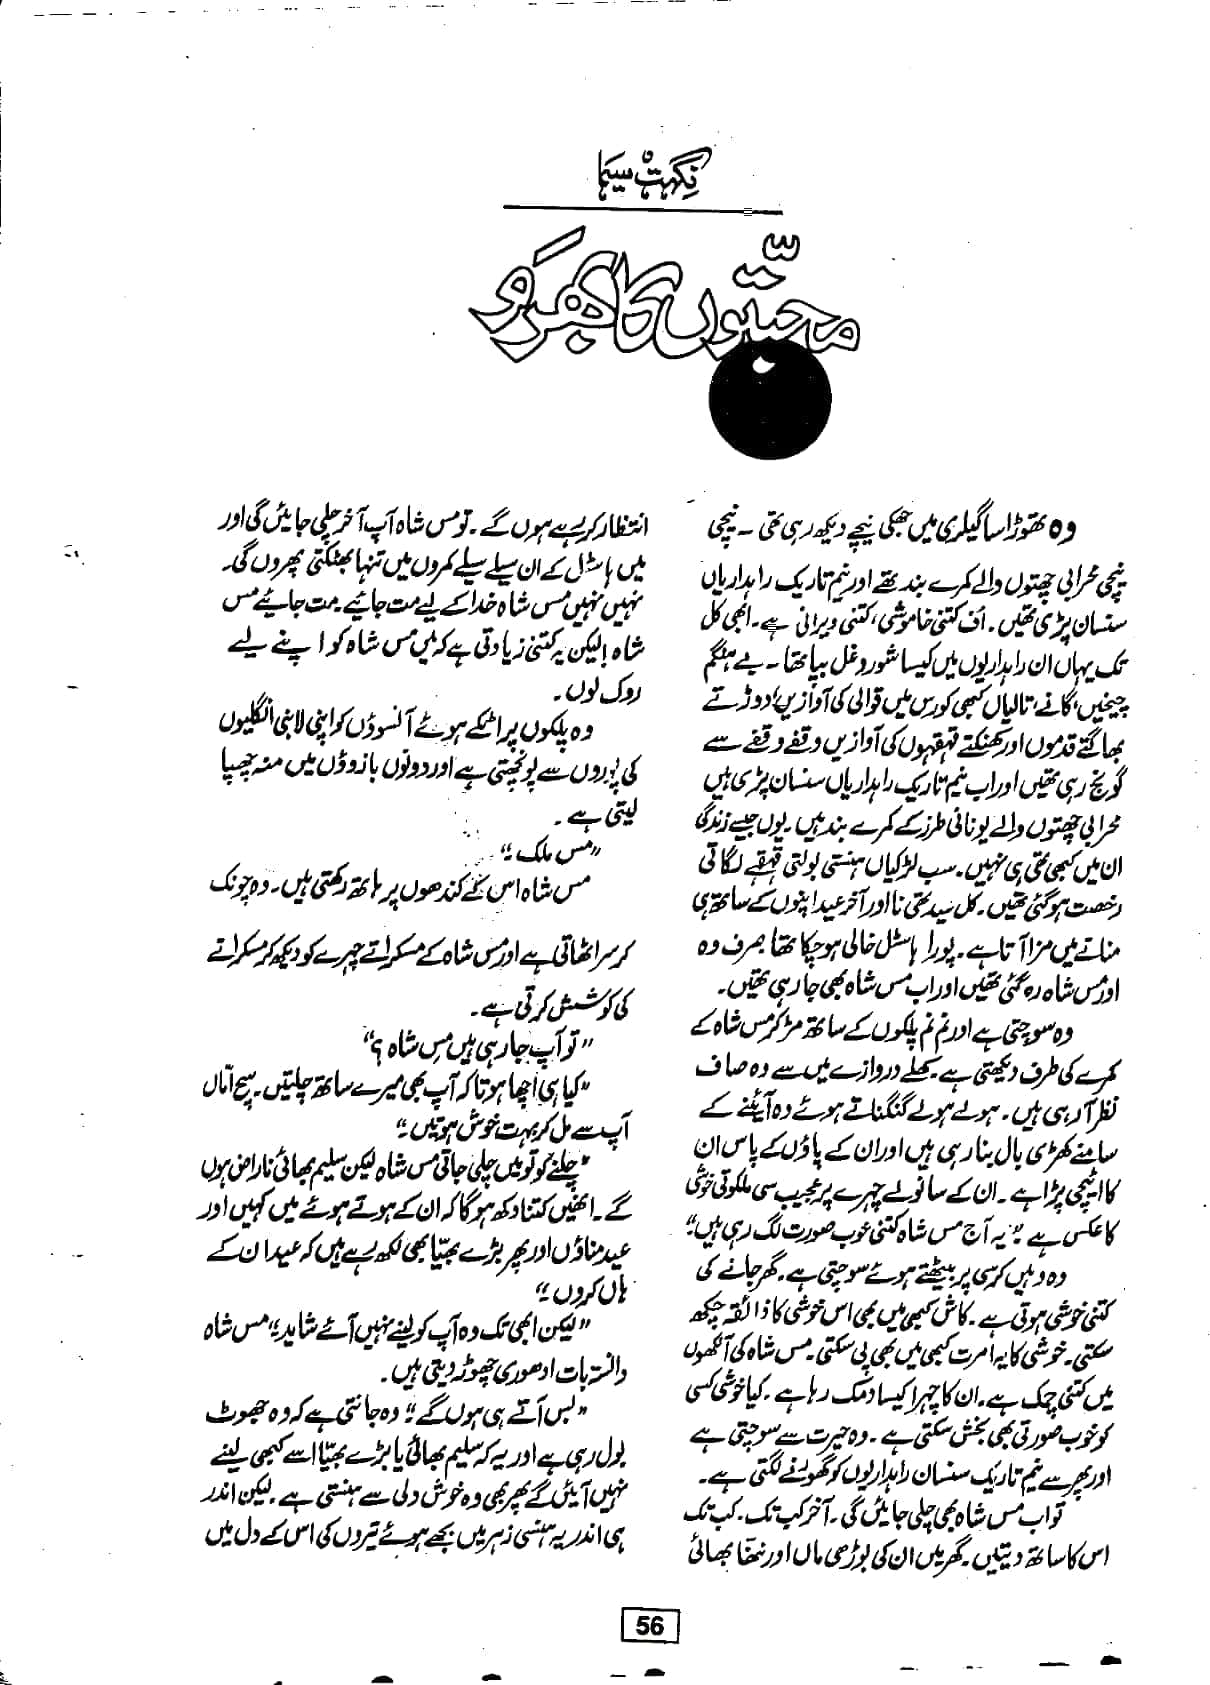 نگہت سیما
محبتوں کا بھرم
وہ تھوڑا سا گیلری میں جھکی نیچے دیکھ رہی تھی ۔ نیچی
نیچی محرابی چھتوں والے کمرے بند تھے اور نیم تاریک راہداریاں
سنسان پڑی تھیں ۔ اُف کتنی خاموشی، کتنی ویرانی ہے۔ ابھی کل
تک یہاں ان راہداریوں میں کیسا شور و غل بپا تھا ۔ بے ہنگم
چیخیں، گانے، تالیاں کبھی کورس میں قوالی کی آوازیں، دوڑتے
بھاگتے قدموں اور کھنکتے قہقہوں کی آوازیں وقفے وقفے سے
گونج رہی تھیں اور اب نیم تاریک راہداریاں سنسان پڑی ہیں
محرابی چھتوں والے یونانی طرز کے کمرے بند ہیں۔ یوں جیسے زندگی
ان میں کبھی تھی ہی نہیں۔ سب لڑکیاں ہنستی بولتی قہقہے لگاتی
رخصت ہوگئی تھیں۔ کل عید تھی نا اور آخر عید اپنوں کے ساتھ ہی
منانے میں مزا آتا ہے۔ پورا ہاسٹل خالی ہوچکا تھا۔ صرف وہ
اور مس شاہ رہ گئی تھیں اور اب مس شاہ بھی جا رہی تھیں۔
وہ سوچتی ہے اور نم نم پلکوں کے ساتھ مڑ کر مس شاہ کے
کمرے کی طرف دیکھتی ہے۔ کھلے دروازے میں سے وہ صاف
نظر آ رہی ہیں۔ ہولے ہولے گنگناتے ہوئے وہ آئینے کے
سامنے کھڑی بال بنا رہی ہیں اور ان کے پاؤں کے پاس ان
کا اٹیچی پڑا ہے ۔ ان کے سانولے چہرے پر عجیب سی ملکوتی خوشی
کا عکس ہے ”یہ آج مس شاہ کتنی خوب صورت لگ رہی ہیں“
وہ وہیں کرسی پر بیٹھتے ہوئے سوچتی ہے۔ گھر جانے کی
کتنی خوشی ہوتی ہے۔ کاش کبھی میں بھی اس خوشی کا ذائقہ چکھ
سکتی۔ خوشی کا یہ امرت کبھی میں بھی پی سکتی۔ مس شاہ کی آنکھوں
میں کتنی چمک ہے۔ ان کا چہرا کیسا دمک رہا ہے۔ کیا خوشی کسی
کو خوب صورتی بھی بخش سکتی ہے ۔ وہ حیرت سے سوچتی ہے
اور پھر سے نیم تاریک سنسان راہداریوں کو گھورنے لگتی ہے۔
تو اب مس شاہ بھی چلی جائیں گی۔ آخر کب تک۔ کب تک
اس کا ساتھ دیتیں۔ گھر میں ان کی بوڑھی ماں اور ننھا بھائی
انتظار کر رہے ہوں گے ۔ تو مس شاہ آپ آخر چلی جائیں گی اور
میں ہاسٹل کے ان سیلے سیلے کمروں میں تنہا بھٹکتی پھروں گی۔
نہیں نہیں مس شاہ خدا کے لیے مت جائیے۔ مت جائیے مس
شاہ! لیکن یہ کتنی زیادتی ہے کہ میں مس شاہ کو اپنے لیے
روک لوں۔
وہ پلکوں پر اٹکے ہوئے آنسوؤں کو اپنی لانبی انگلیوں
کی پوروں سے پونچھتی ہے اور دونوں بازوؤں میں منہ چھپا
لیتی ہے ۔
”مس ملک“
مس شاہ اس کے کندھوں پر ہاتھ رکھتی ہیں۔ وہ چونک
کر سر اٹھاتی ہے اور مس شاہ کے مسکراتے چہرے کو دیکھ کر مسکرانے
کی کوشش کرتی ہے۔
”تو آپ جا رہی ہیں مس شاہ ؟“
”کیا ہی اچھا ہوتا کہ آپ بھی میرے ساتھ چلتیں۔ سچ اماں
آپ سے مل کر بہت خوش ہوتیں“
”چلنے کو تو میں چلی جاتی مس شاہ لیکن سلیم بھائی ناراض ہوں
گے ۔ انھیں کتنا دکھ ہوگا کہ ان کے ہوتے ہوئے میں کہیں اور
عید مناؤں اور پھر بڑے بھیّا بھی لکھ رہے ہیں کہ عید ان کے
ہاں کروں“
”لیکن ابھی تک وہ آپ کو لینے نہیں آئے شاید“ مس شاہ
دانستہ بات ادھوری چھوڑ دیتی ہیں۔
”بس آتے ہی ہوں گے“ وہ جانتی ہے کہ وہ جھوٹ
بول رہی ہے اور یہ کہ سلیم بھائی یا بڑے بھیّا اسے کبھی لینے
نہیں آئیں گے پھر بھی وہ خوش دلی سے ہنستی ہے۔ لیکن اندر
ہی اندر یہ ہنسی زہر میں بجھے ہوئے تیروں کی اس کے دل میں
56